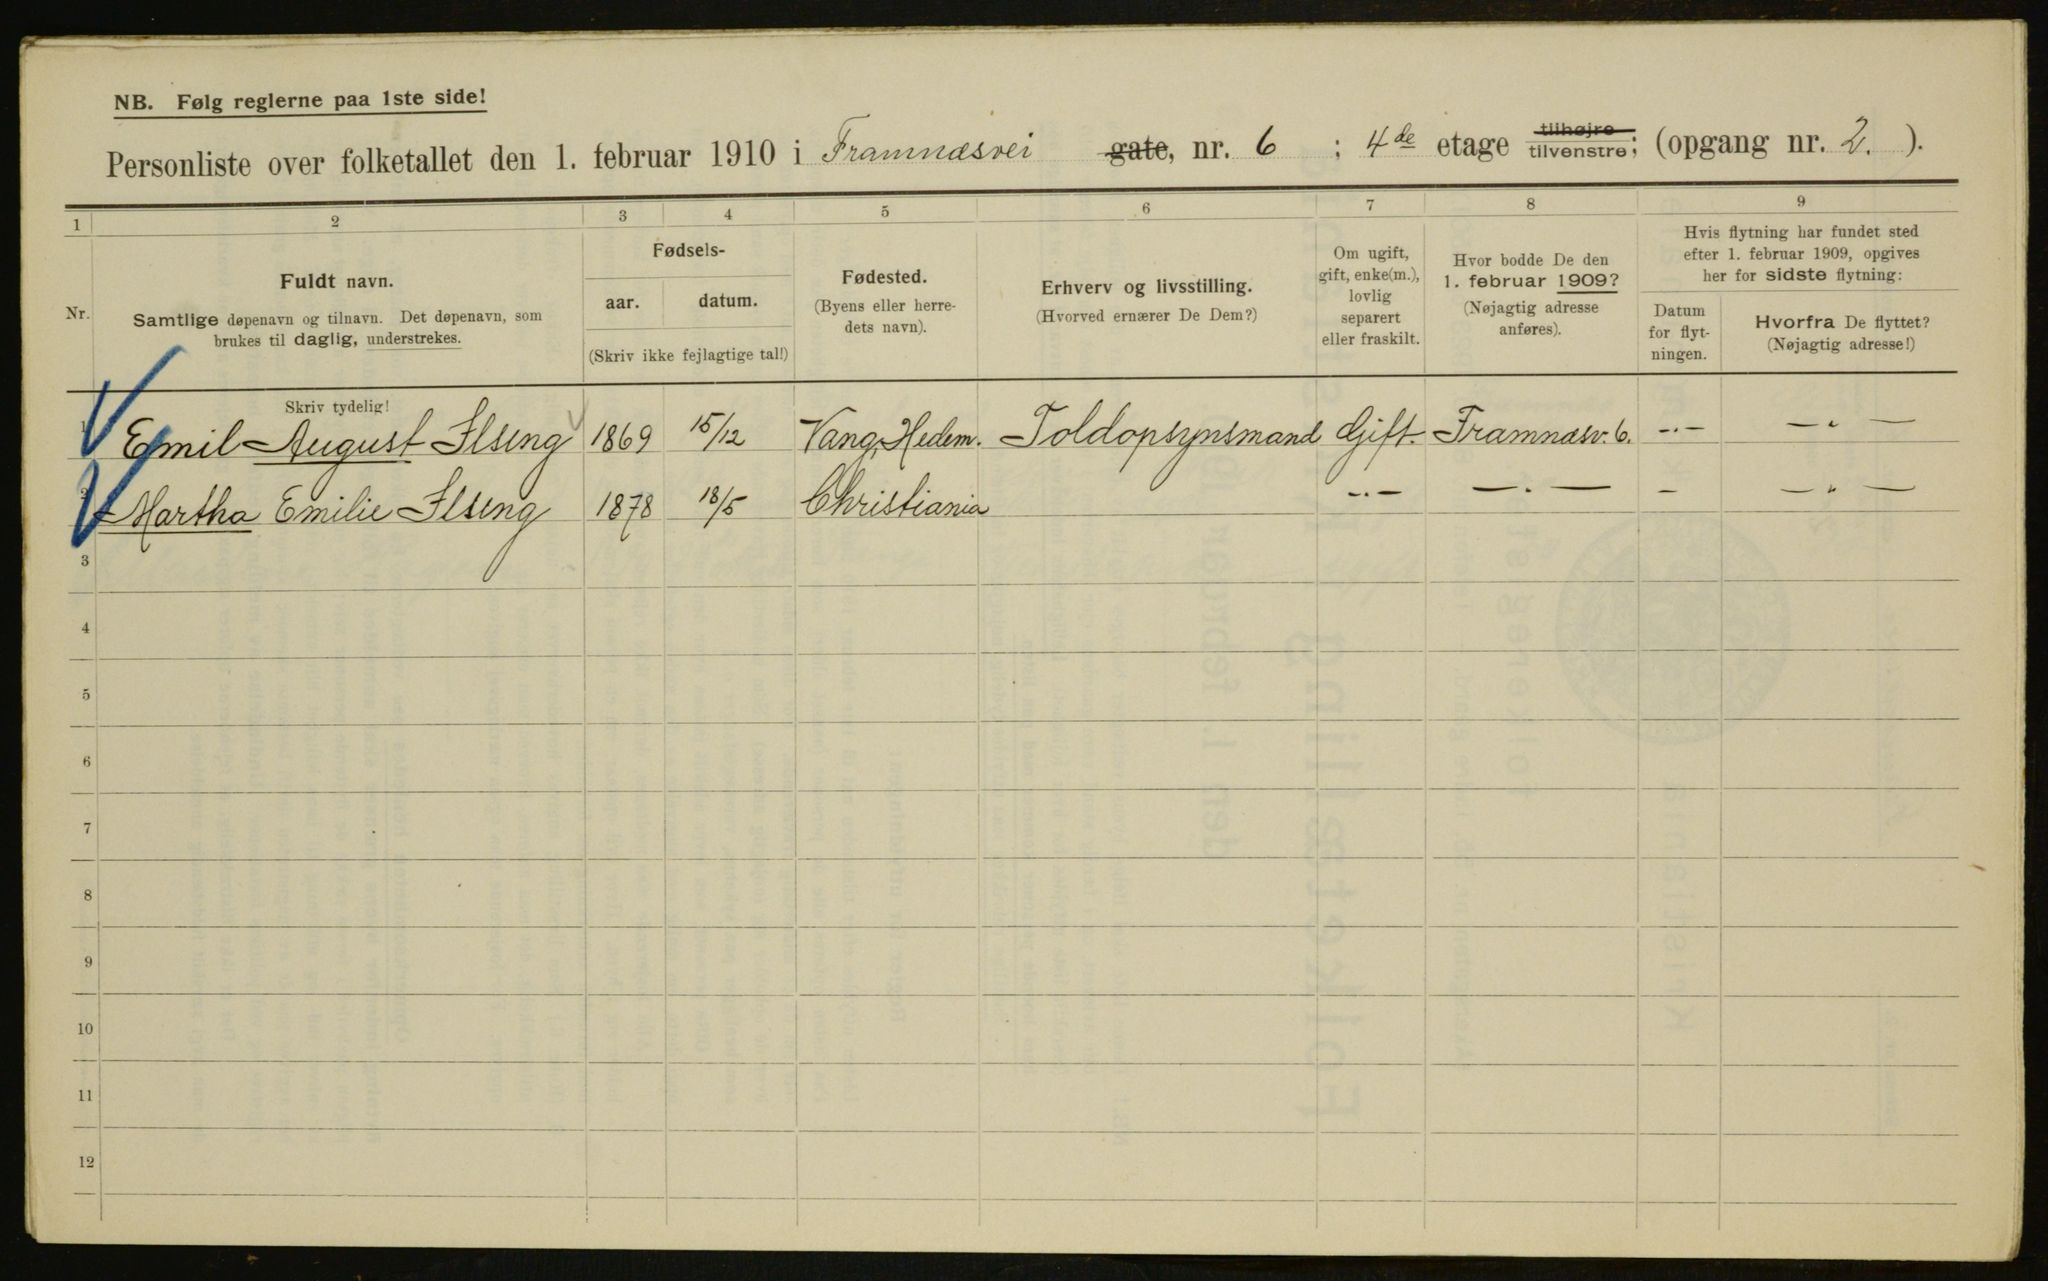 NB. Følg reglerne paa 1ste side!
Personliste over folketallet den 1. februar 1910 i Framnæsvei gate, nr. 6 ; 4de etage tilhøjre tilvenstre; (opgang nr. 2. ).
1 2 3 4 5 6 7 8 9
Nr.
Fuldt navn.
Samtlige døpenavn og tilnavn. Det døpenavn, som
brukes til daglig, understrekes.
Fødsels-
aar. datum.
(Skriv ikke fejlagtige tal!)
Fødested.
(Byens eller herre-
dets navn).
Erhverv og livsstilling.
(Hvorved ernærer De Dem?)
Om ugift,
gift, enke(m.),
lovlig
separert
eller fraskilt.
Hvor bodde De den
1. februar 1909?
(Nøjagtig adresse
anføres).
Hvis flytning har fundet sted
efter 1. februar 1909, opgives
her for sidste flytning:
Datum
for flyt-
ningen.
Hvorfra De flyttet?
(Nøjagtig adresse!)
Skriv tydelig!
1 Emil August Ilseng 1869 15/12 Vang, Hedem. Toldopsynsmand Gift. Framnæsv. 6. —„— —„—
2 Martha Emilie Ilseng 1878 18/5 Christiania —„— —„— — —„—
3
4
5
6
7
8
9
10
11
12